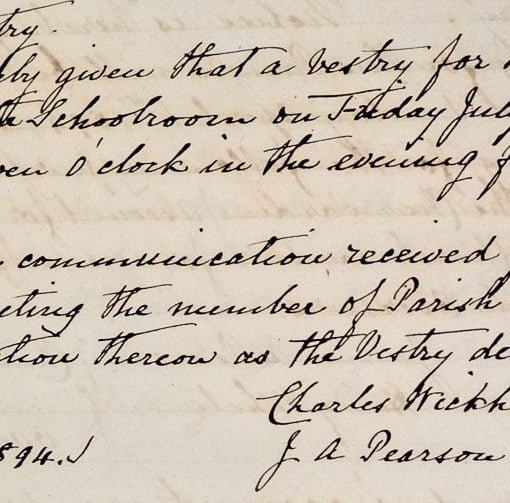 try.
eby given that a vestry for
Schoolroom on Friday July
ven O'clock in the evening f
communication received
cting the member of Parish
tion thereon as the Vestry de
Charles Wickh
894.)
J A Pearson